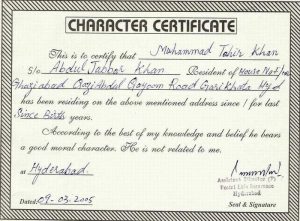 CHARACTER CERTIFICATE
This is to certify that Muhammad Tahir Khan
S/o Abdul Jabbar Khan Resident of House No
Ghaziabad Qazi Abdul Qayoom Road Gari Khata Hyd
has been residing on the above mentioned address since / for last
Since Birth years.
According to the best of my knowledge and belief he bears
a good moral character. He is not related to me.
at Hyderabad.
Assistant Director
Postal Life Insurance
Hyderabad
Dated: 09-03-2005 Seal & Signature